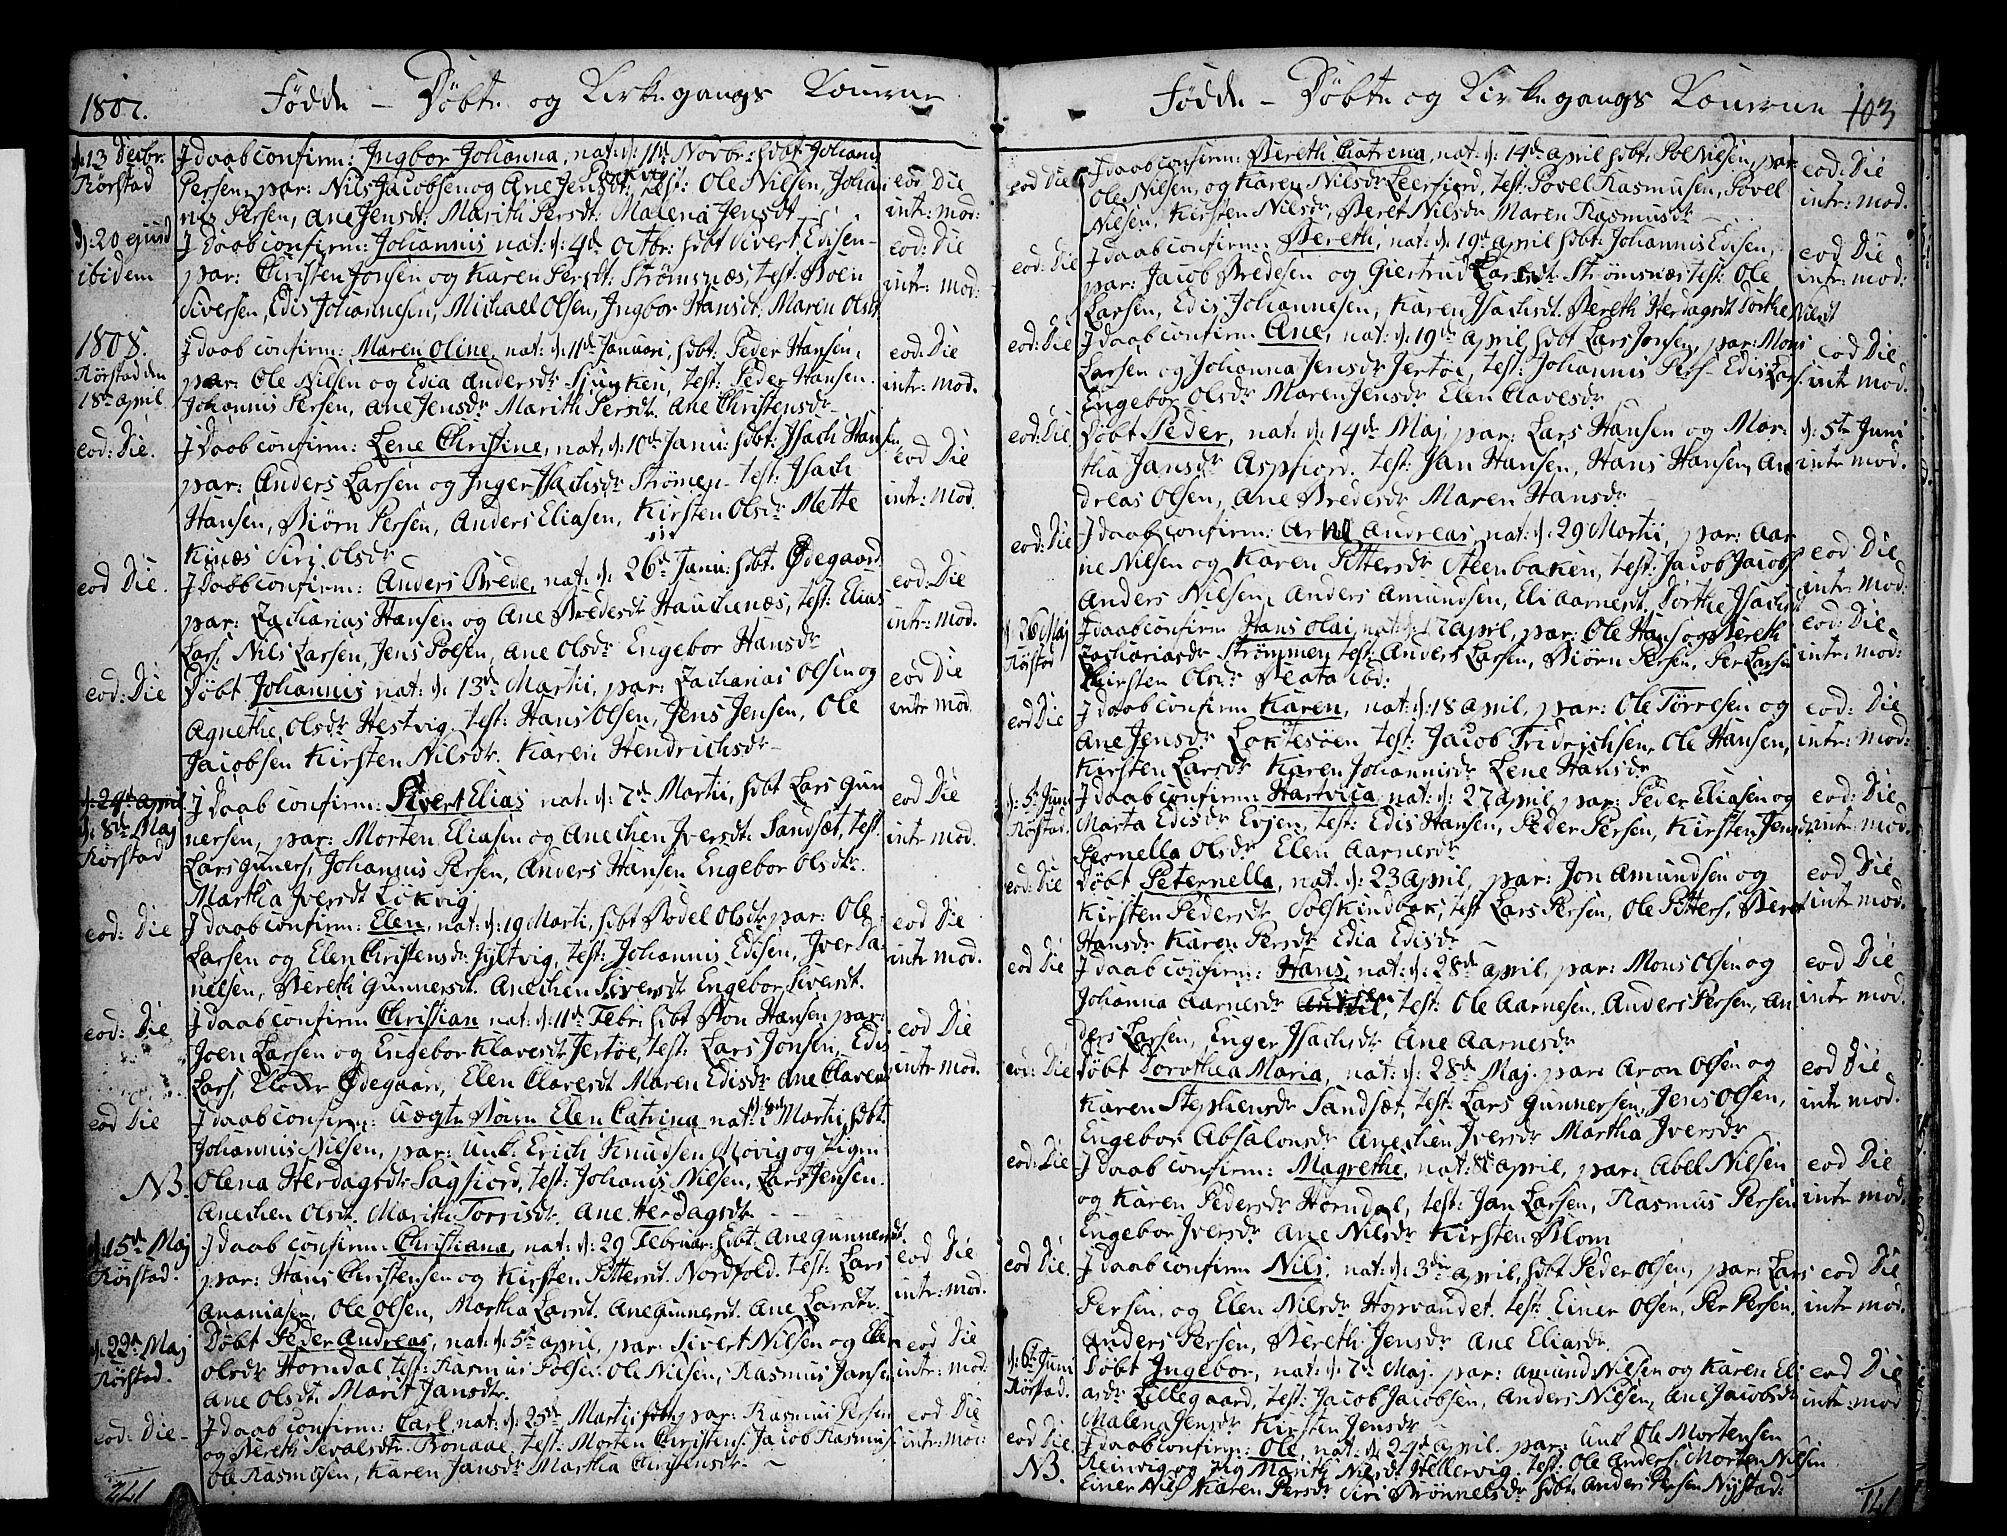 1807.
Födde – Döbte og Kirkegangs Konerne
d: 13 Decbr. J daab confirm: Ingbor Johanna, nat: d: 11th Novbr: hdbt Johannis
Rörstad Persen, par: Nils Jacobsen og Ane Jensdt: test: Ole Nilsen, Johan eod Die
nis Persen, Ane Jensdt: Marith Persdt: Malena Jensdt intr: mod:
d: 20 ejusd J daab confirm: Johannis nat: d: 4de Octbr: hdbt Sivert Edisen eod: Die
ibidem par: Christen Jonsen og Karen Persdt: Strömsnæs, test: Boen intr: mod:
Siversen, Edis Johannesen, Michael Olsen, Ingbor Hansdt, Maren Olsdt
1808. J daab confirm: Maren Oline, nat: d: 11de Januari, hdbt: Peder Hansen, eod: Die
Rörstad den par: Ole Nilsen og Edia Andersdr Sjunken, test: Peder Hansen. intr: mod.
18de April Johannis Persen, Ane Jensdr Marith Persdt. Ane Christensdr
eod: Die. J daab confirm: Lene Christine, nat, d: 10de Janu: hdbt: Isach Hansen eod Die
par: Anders Larsen og Inger Isachsdr Strömen test: Isach intr: mod.
Hansen, Biörn Persen, Anders Eliasen, Kirsten Olsdr Mette
Kinæs Siri Olsdr
eod Die. J daab confirm: Anders Brede, nat: d: 26de Janu: hdbt. Ödegaard eod: Die
par: Zacharias Hansen og Ane Bredesdt Hauchenæs, test: Elias intr: mod.
Lars. Nils Larsen, Jens Poelsen, Ane Olsdr Engebor Hansdr
eod: Die Döbt Johannis nat: d: 13de Martii, par: Zacharias Olsen og eod Die
Agnethe Olsdr Hestvig, test: Hans Olsen, Jens Jensen, Ole intr mod.
Jacobsen Kirsten Nilsdr. Karen Hendrichsdr
d: 24de april J daab confirm: Sivert Elias nat: d: 7de Martii, hdbt Lars Gun eod Die
d: 8de Maj nersen, par: Morten Eliasen og Anechen Iversdt: Sandsæt, test. intr mod.
Rörstad Lars Guners, Johannis Persen, Anders Hansen Engebor Olsdtr.
Martha Iversdt Lökvig
eod: Die J daab confirm: Elen, nat: d: 19 Marti, hdbt Bodel Olsdtr par: Ole eod Die
Larsen og Elen Christensdr Jyltvig, test: Johannis Edisen, Iver Da intr mod.
nielsen, Bereth Gunnersdt. Anechen Siversdt Engebor Siversdt.
eod: Die J daab confirm Christian nat: d: 11de Febr: hdbt Hansen par: eod Die
Joen Larsen og Engebor Klavesdt Jertöe, test: Lars Jonsen, Edis intr mod.
Lars, Ödegaard, Elen Clavesdt Maren Edisdr Ane Claves
eod Die J daab confirm: uægte Barn Elen Catrina nat: d: 8de Martii, hdbt:
Johannis Nilsen, par: Unk: Erich Knudsen Movig og Pigen
NB. Olena Herdagsdr Sagfiord, test: Johanis Nilsen, Lars Jensen.
Anechen Olsdt. Marith Torrisdt. Ane Herdagsdt
d: 15de Maj J daab confirm: Christiana, nat: d: 29 Februar: hdbt: Ane Gunnersdt. eod Die
Rörstad. par: Hans Christensen og Kirsten Pittersdt. Nordfold. test: Lars intr: mod.
Ananiasen, Ole Olsen, Martha Larsdt. Ane Gunnersdt. Ane Larsdtr.
d: 22de Maj Döbt Peder Andreas, nat: d: 5te april, par: Sivert Nilsen og Elen eod Die
Rörstad. Olsdr Horndal, test: Rasmus Polsen Ole Nielsen, Rasmus Jansen intr: mod:
Ane Olsdt. Marit Jansdtr.
eod: Die – J daab confirm: Carl, nat: d: 25de Martii: par: Rasmus Persen eod Die
og Bereth Sevalsdtr. test: Morten Christens: Jacob Rasmus intr: mod:
Ole Rasmusen, Karen Jansdr Martha Christensdr.
Födde – Döbte og Kirkegangs Konerne 103
eod Die J daab confirm: Bereth Catrina, nat: d: 14de april hdbt: Poe Nilsen, par: eod: Die
Ole Nilsen, og Karen Nilsdr Leerfiord, test: Povel Rasmusen, Povel intr: mod.
Nilsen, Kirsten Nilsdr, Beret Nilsdr Maren Rasmusdr
eod: Die J daab confirm: Bereth, nat: d: 19de april hdbt: Johannis Edisen, eod Die
par: Jacob Bredesen og Giertrud Larsdt: Strömsnæs test: Ole intr: mod:
Larsen, Edis Johannesen, Karen Isachsdt. Bereth Herdagsdt Dorthe Nilsdt
eod: Die J daab confirm Ane, nat: d: 19de april hdbt Lars Jonsen, par: Mons eod Die
Larsen og Johanna Jensdr Jertöe, test: Johannis Pers– Edis Lars. intr mod.
Engebor Olsdr Maren Jensdr Elen Clavesdr
eod: Die Döbt Peder, nat: d: 14de Maj, par: Lars Hansen og Mar: d: 5te Juni
tha Jansdr Aspfiord. test: Jan Hansen, Hans Hansen, An intr mod.
dreas Olsen, Ane Bredesdr Maren Hansdr
eod: Die J daab confirm: Arnt Andreas, nat: d: 29 Martii, par: Aar eod Die
ne Nilsen og Karen Pittersdr Steenbaken, test: Jacob Jacobs intr mod:
Anders Nilsen, Anders Amundsen, Eli Aarnesdt. Dorthe Isachsdt
d: 26 Maj J daab confirm Hans Olai, nat: d: 17 april, par: Ole Hans og Bereth eod: Die
Rörstad Zachariasdr Strömmen test: Anders Larsen, Biörn Persen, Per Larsen intr: mod:
Kirsten Olsdr Beata ibd:
eod Die J daab confirm Karen, nat: d: 18 april, par: Ole Törresen og eod: Die
Ane Jensdr Löktesöen test: Jacob Fridrichsen, Ole Hansen, intr: mod:
Kirsten Larsdr Karen Johannisdr Lene Hansdr
d: 5te Juni J daab confirm: Hartvica, nat: d: 27 april, par: Peder Eliasen og eod: Die
Rörstad. Marta Edisdr Evjen, test: Edis Hansen, Peder Persen, Kirsten Jensdr intr: mod:
Pernella Olsdr Elen Aarnesdr
eod: Die Döbt Peternella, nat: d: 23 april, par: Jon Amundsen og eod Die
Kirsten Pedersdr Solskindbak, test Lars Persen, Ole Pitters, Beret intr mod.
Hansdr Karen Persdr Edia Edisdr
eod Die J daab confirm: Hans, nat: d: 28de april, par: Mons Olsen og eod Die
Johanna Aarnesdr test: Ole Aarnesen, Anders Persen, An intr mod.
ders Larsen, Enger Isachsdr Ane Aarnesdr
eod: Die Döbt Dorothea Maria, nat: d: 28de Maj. par: Aron Olsen og eod Die
Karen Stephensdr Sandsæt, test: Lars Gunnersen, Jens Olsen, intr mod.
Engebor Absalonsdr Anechen Iversdr Martha Iversdr
eod: Die J daab confirm: Magrethe, nat: 8de april, par: Abel Nilsen eod Die
og Karen Pedersdr Horndal, test: Jan Larsen, Rasmus Persen intr mod:
Engebor Iversdr Ane Nilsdr Kirsten Blom
eod Die J daab confirm Nils, nat: d: 3die april, hdbt Peder Olsen, par: Lars eod Die
Persen, og Elen Nilsdr Hopvandet. test: Einer Olsen, Per Persen, intr mod.
Anders Persen, Bereth Jensdr Ane Eliasdr.
d: 6te Juni Döbt Ingebor, nat: d: 7de Maj. par: Amund Nilsen og Karen Eli eod Die
Rörstad. asdr Lillegaard, test: Jacob Jacobsen, Anders Nilsen, Ane Jacobsdt intr: mod
Malena Jensdr Kirsten Jensdr
eod Die J daab confirm: Ole, nat: d: 24de april. par: Unk Ole Mortensen
NB. Reinvig og Pig Marith Nilsdr Hellervig, test: Ole Anders. Morten Nilsen
Einer Nils Karen Persdr Siri Brönnelsdr hdbt Anders Persen Nystad: